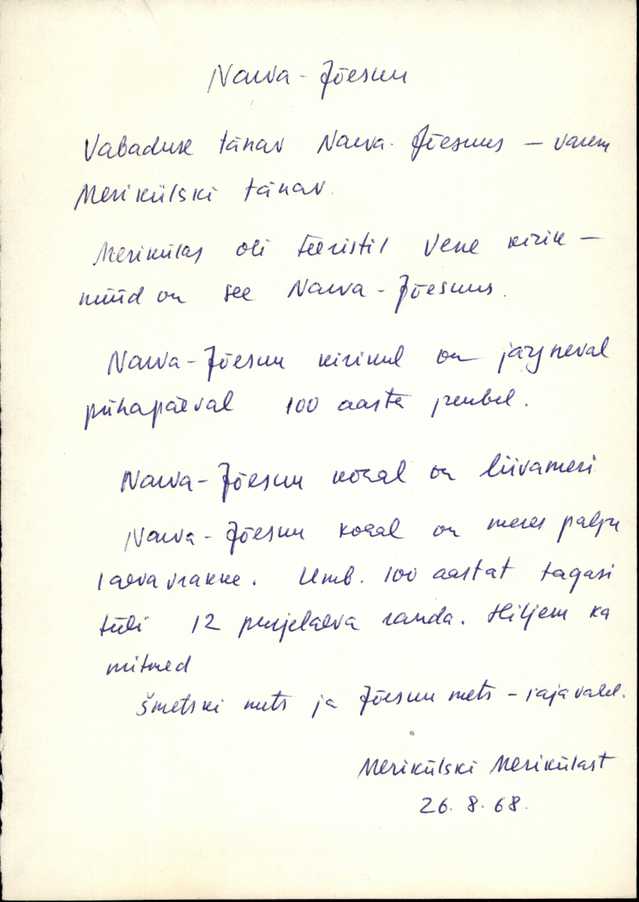 Narva-Jõesuu
Vabaduse tänav Narva-Jõesuus – varem
Meriküljski tänav.
Merikülas oli teeristil Vene kirik –
nüüd on see Narva-Jõesuus.
Narva-Jõesuu kirikul on järgneval
pühapäeval 100 aasta juubel.
Narva-Jõesuu kohal on liivameri
Narva-Jõesuu kohal on meres palju
laevavrakke. Umb. 100 aastat tagasi
tuli 12 purjelaeva randa. Hiljem ka
mitmed
Šmetski mets ja Jõesuu mets –
Merikülski Merikülast
26.8.68.